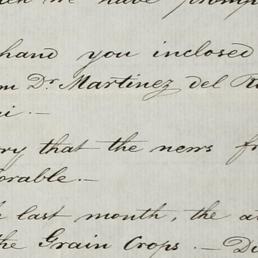 we have prompt
hand you inclosed
Dr. Martinez del R
that the news
orable.—
last month, the a
the Grain Crops.—